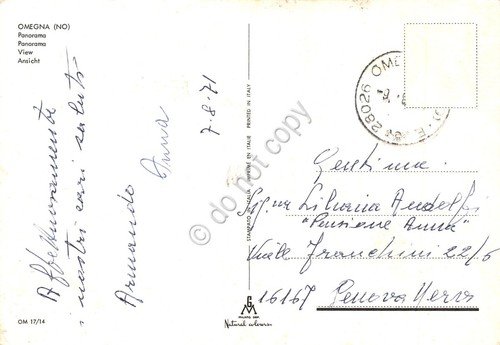 OMEGNA (NO)
Panorama
Panorama
View
Ansicht
Affettuosamente
i nostri cari saluti
Armando
Anna
7.8.71
OM 17/14
STAMPATO IN ITALIA IMPRIMÉ EN ITALIE PRINTED IN ITALY
GM
Natural colorcor
do not copy
28026 OME
Gentilma
Sig.na Silvana Andolfi
"Pensione Anna"
Viale Franchini 22/6
16167 Genova Nervi